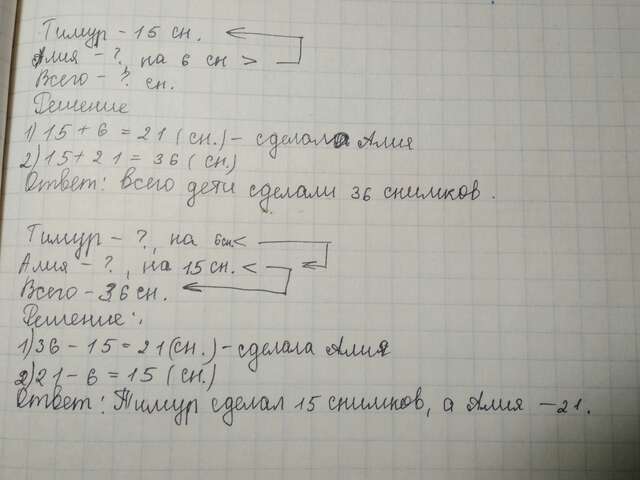 Тимур - 15 сн.
Алия - ?, на 6 сн >
Всего - ? сн.
Решение
1) 15 + 6 = 21 (сн.) - сделала Алия
2) 15 + 21 = 36 (сн)
Ответ: всего дети сделали 36 снимков.
Тимур - ?, на 6сн <
Алия - ?, на 15 сн. <
Всего - 36 сн.
Решение:
1) 36 - 15 = 21 (сн.) - сделала Алия
2) 21 - 6 = 15 (сн.)
Ответ: Тимур сделал 15 снимков, а Алия - 21.